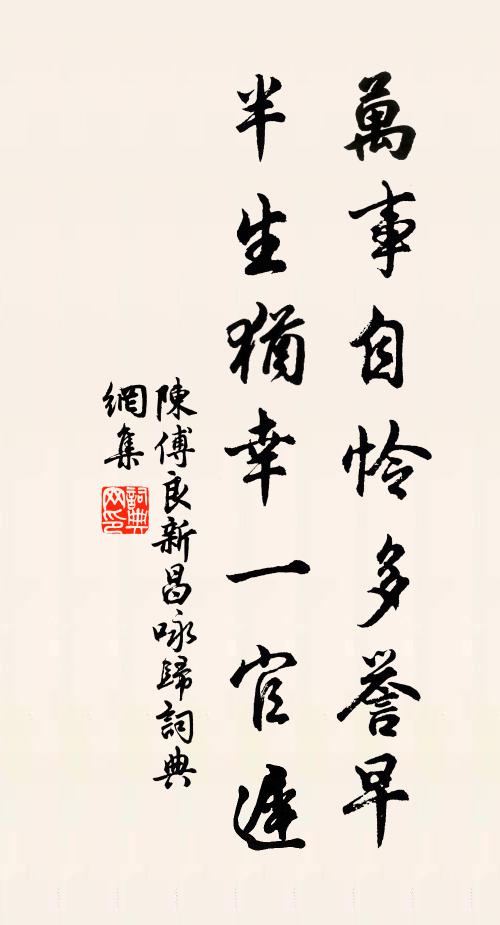 萬事自怜多譽早
半生猶幸一官遲
陳傅良新昌咏歸詞典
網集
詞典网印